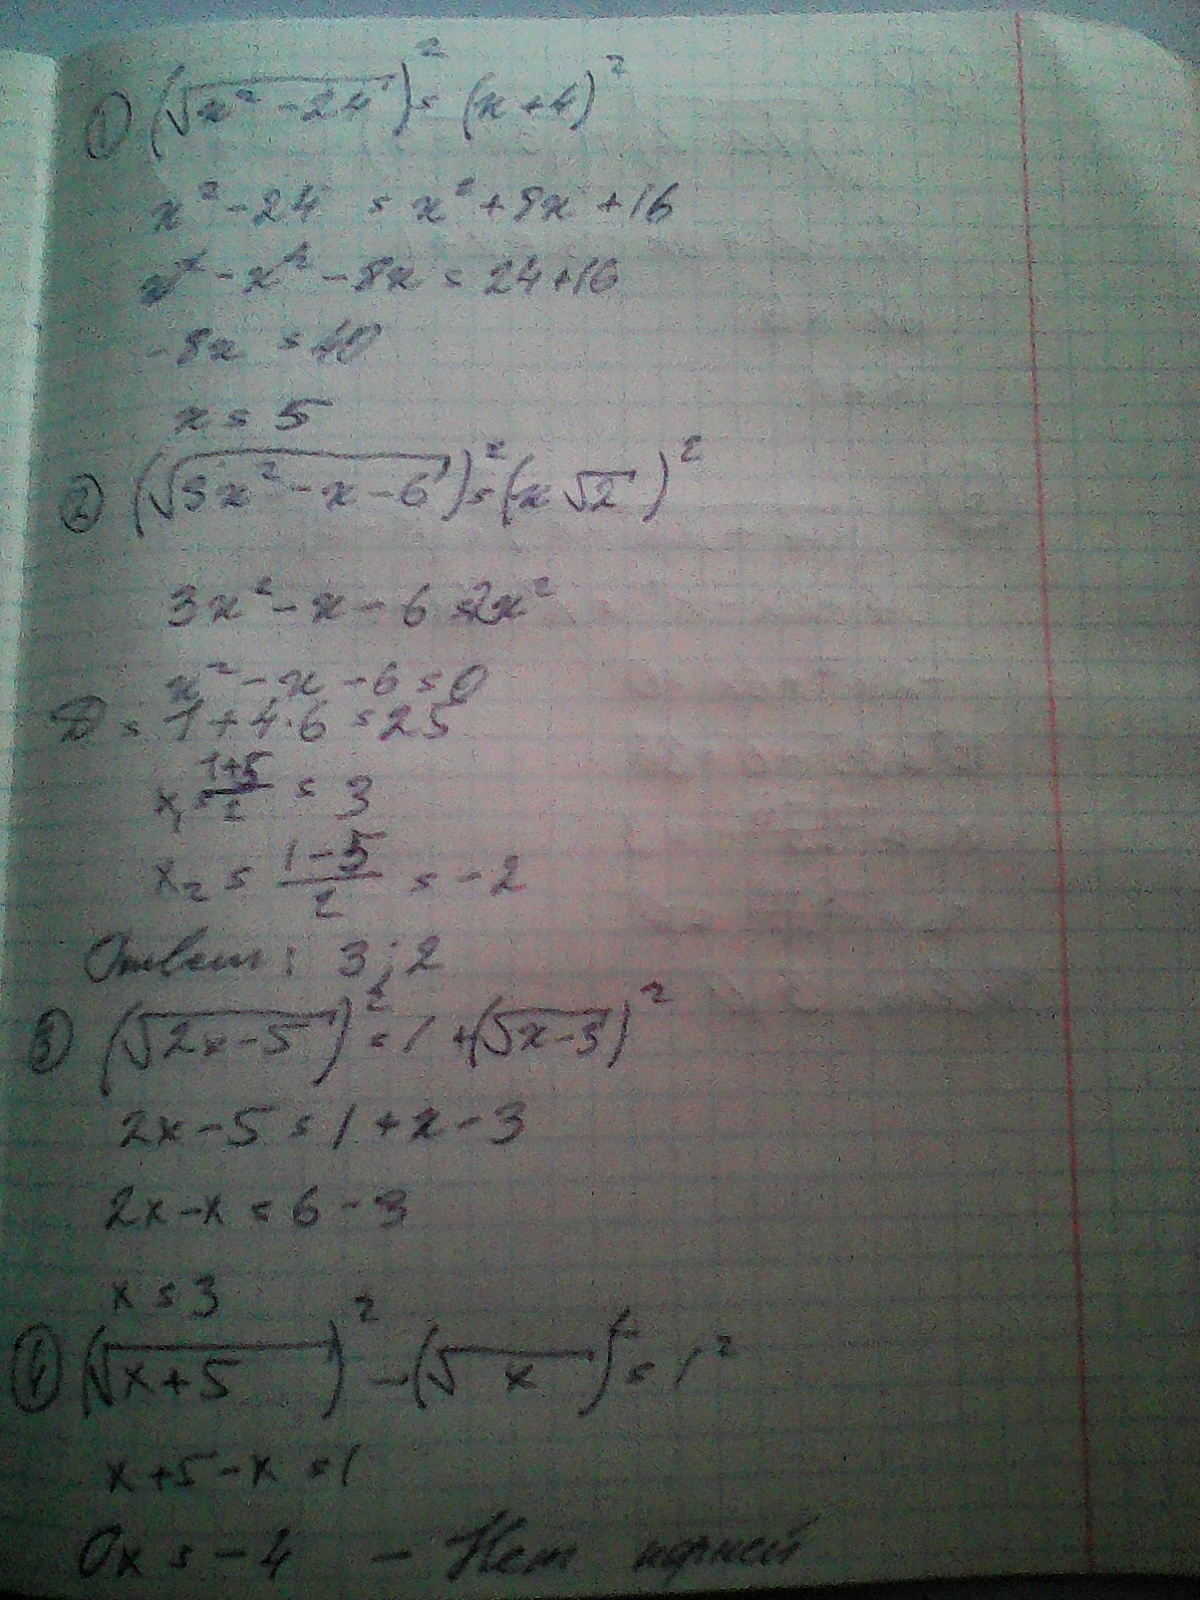 ① (√x² - 24)² = (x + 4)²
x² - 24 = x² + 8x + 16
x² - x² - 8x = 24 + 16
-8x = 40
x = 5
② (√3x² - x - 6)² = (x √2)²
3x² - x - 6 = 2x²
x² - x - 6 = 0
D = 1 + 4·6 = 25
x₁ = (1+5)/2 = 3
x₂ = (1-5)/2 = -2
Ответ: 3; 2
③ (√2x - 5)² = 1 + (√x - 3)²
2x - 5 = 1 + x - 3
2x - x = 6 - 3
x = 3
④ (√x + 5)² - (√x)² = 1²
x + 5 - x = 1
0x = -4 - Нет корней